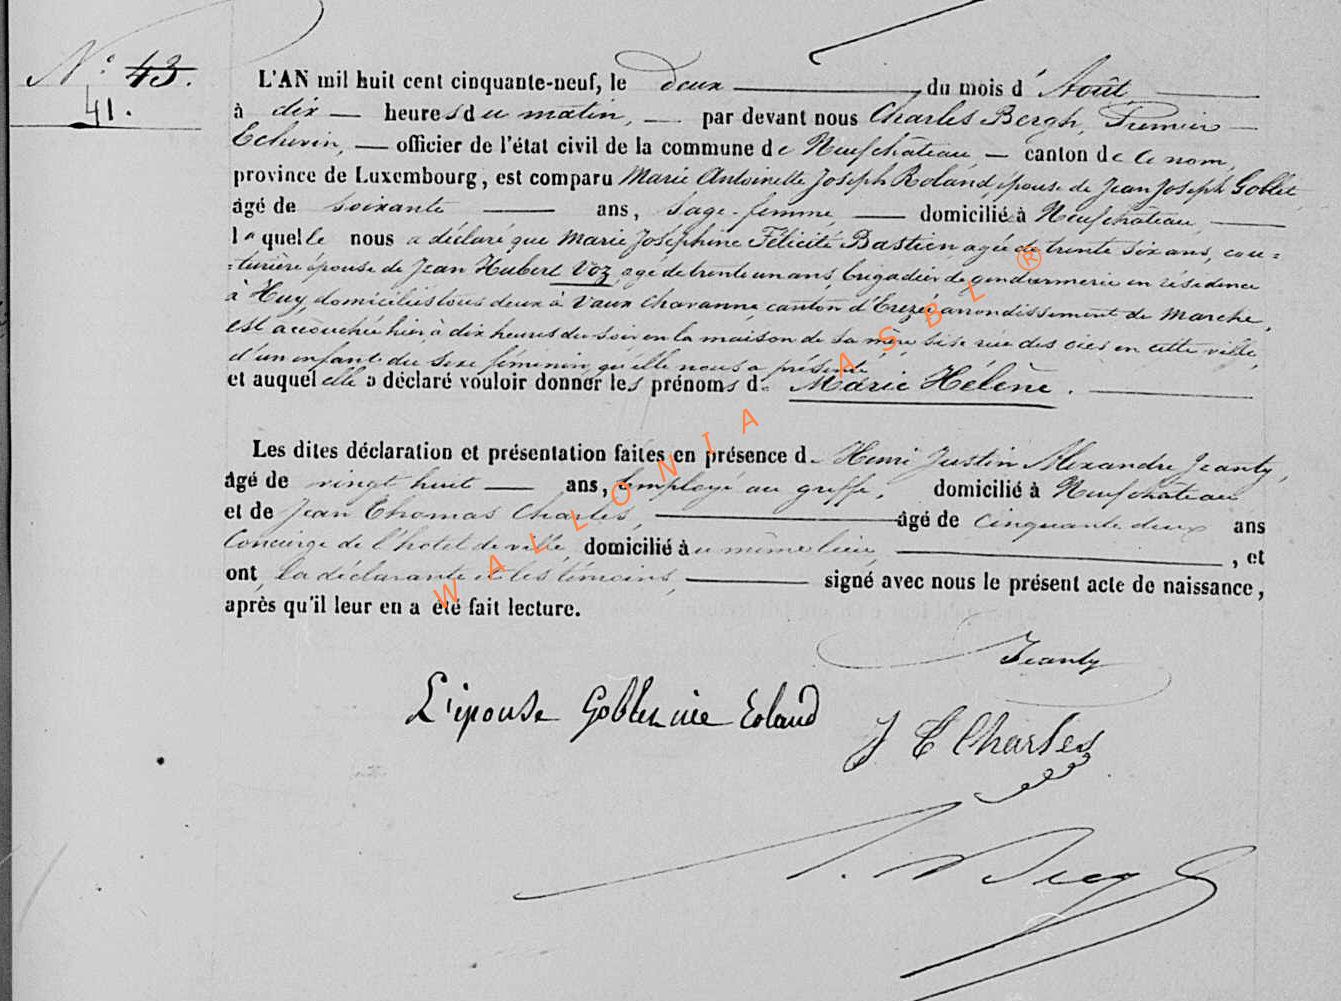 N° 43.
41.
L'AN mil huit cent cinquante-neuf, le deux du mois d' Août
à dix heures du matin, par devant nous Charles Bergh, Premier
Echevin, officier de l'état civil de la commune de Neufchâteau, canton de ce nom,
province de Luxembourg, est comparu Marie Antoinette Joseph Roland, épouse de Jean Joseph Goblet
âgé de soixante ans, Sage-femme, domicilié à Neufchâteau,
laquelle nous a déclaré que Marie Joséphine Félicité Bastien, agée de trente six ans, cou=
=turière, épouse de Jean Hubert Voz agé de trente un ans, brigadier de gendarmerie en résidence
à Huy, domiciliés tous deux à Vaux Chavanne, canton d'Erezée arrondissement de Marche,
est accouchée hier, à dix heures du soir en la maison de sa mère, sise rue des en cette ville,
d'un enfant du sexe féminin qu'elle nous a présenté
et auquel elle a déclaré vouloir donner les prénoms de Marie Hélène.
Les dites déclaration et présentation faites en présence de Henri Justin Alexandre Jeanty,
âgé de vingt huit ans, employé au greffe, domicilié à Neufchâteau
et de Jean Thomas Charles, âgé de Cinquante deux ans
Concierge de l'hotel de ville, domicilié au même lieu, , et
ont la déclarante et les témoins, signé avec nous le présent acte de naissance,
après qu'il leur en a été fait lecture.
Jeanty
L'épouse Goblet née Roland
J T Charles
WALLONIA ASBL ®